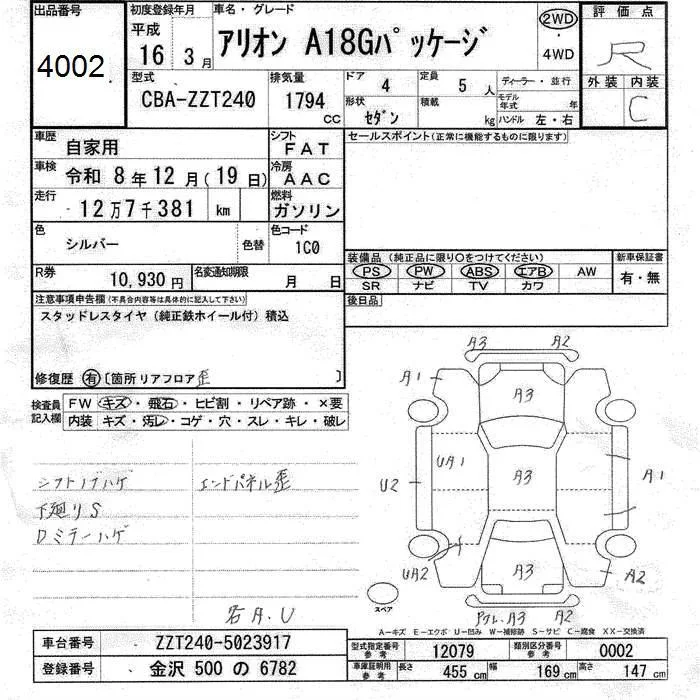 出品番号
4002
初度登録年月
平成
16 年 3 月
車名・グレード
アリオン A18Gパッケージ
2WD
・
4WD
評価点
R
外装 内装
C
型式
CBA-ZZT240
排気量
1794 CC
ドア 4
定員 5 人
形状 セダン
積載 kg
ディーラー・並行
モデル年式 年
ハンドル 左・右
車歴 自家用
シフト FAT
車検 令和 8年 12月(19日)
冷房 AAC
走行 12万7千381 km
燃料 ガソリン
色 シルバー 色替
色コード 1C0
R券 10,930円
名変通知期限 月 日
セールスポイント(正常に機能するものに限ります)
装備品(純正品に限り○をつけてください)
PS PW ABS エアB AW
SR ナビ TV カワ
新車保証書
有・無
後日品
注意事項申告欄(不具合内容等は具体的に記入して下さい)
スタッドレスタイヤ(純正鉄ホイール付)積込
修復歴 有 [箇所 リアフロア歪 ]
検査員記入欄
FW キズ・飛石・ヒビ割・リペア跡・×要
内装 キズ・汚レ・コゲ・穴・スレ・キレ・破レ
シフトノブハゲ
エンドパネル歪
下廻りS
Dミラーハゲ
右A.U
A3 A2
A1 A3
UA1 A3 A1
U2
UA2 A3 A2
スペア
A3 A2
A-キズ E-エクボ U-凹み W-補修跡 S-サビ C-腐食 XX-交換済
車台番号 ZZT240-5023917
登録番号 金沢 500 の 6782
型式指定番号 参考 12079
類別区分番号 参考 0002
車庫証明用 参考
長さ 455 cm
幅 169 cm
高さ 147 cm